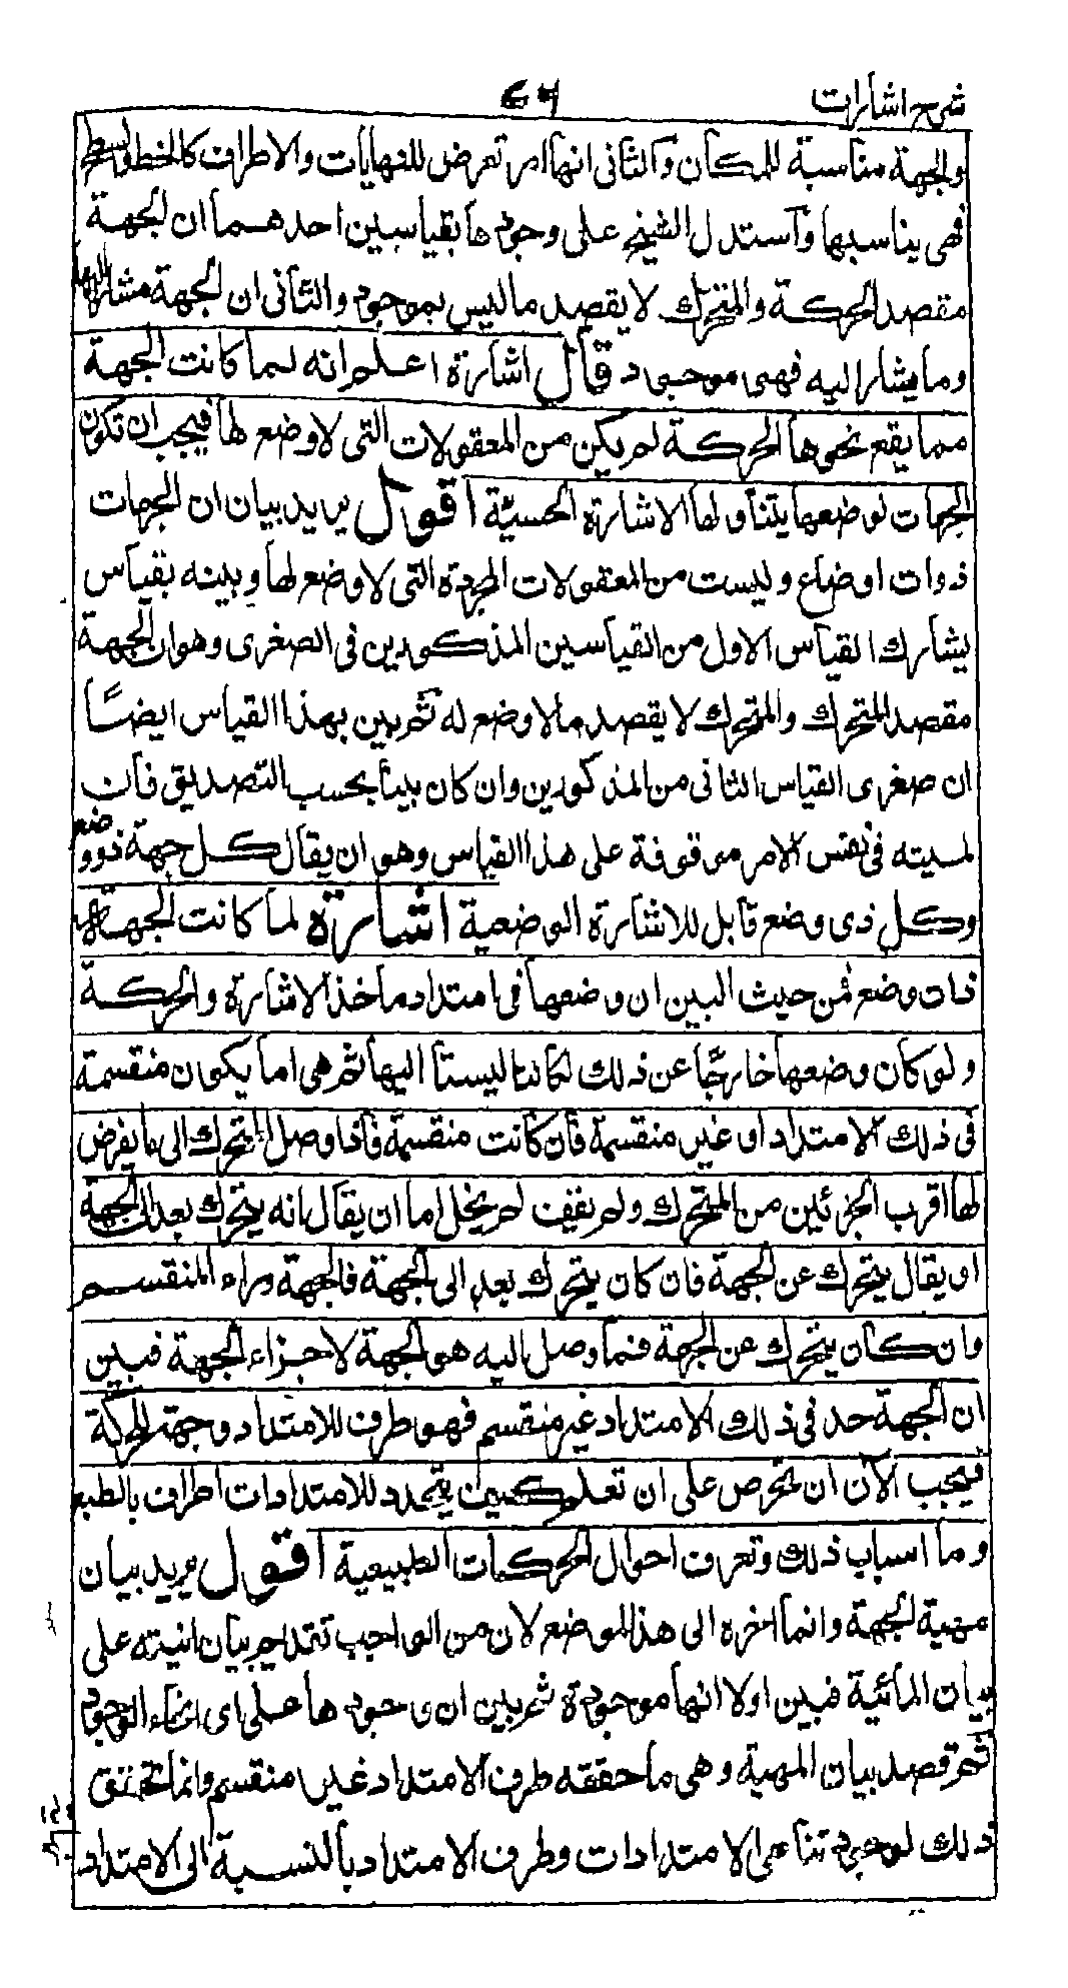 شرح اشارات
والجهة مناسبة للمكان والثانى انها امر تعرض للنهايات والاطراف كالخط والسطح
فهى يناسبها واستدل الشيخ على وجودها بقياسين احدهما ان الجهة
مقصد الحركة والمتحرك لا يقصد ما ليس بموجود والثانى ان الجهة مشار اليها
وما يشار اليه فهى موجود قال اشارة اعلم انه لما كانت الجهة
مما يقع نحوها الحركة لم يكن من المعقولات التى لا وضع لها فيجب ان تكون
الجهات لوضعها يتناولها الاشارة الحسية اقول يريد بيان ان الجهات
ذوات اوضاع وليست من المعقولات المجردة التى لا وضع لها وبينه بقياس
يشارك القياس الاول من القياسين المذكورين فى الصغرى وهو ان الجهة
مقصد المتحرك والمتحرك لا يقصد ما لا وضع له ثم بين بهذا القياس ايضا
ان صغرى القياس الثانى من المذكورين وان كان بينا بحسب التصديق فان
لميته فى نفس الامر موقوفة على هذا القياس وهو ان يقال كل جهة ذو وضع
وكل ذى وضع قابل للاشارة الوضعية اشارة لما كانت الجهة
ذات وضع فمن حيث البين ان وضعها فى امتداد ماخذ الاشارة والحركة
ولو كان وضعها خارجا عن ذلك لكانتا ليستا اليها ثم هى اما يكون منقسمة
فى ذلك الامتداد او غير منقسمة فان كانت منقسمة فاذا وصل المتحرك الى ما يفرض
لها اقرب الجزئين من المتحرك ولم يقف لم يخل اما ان يقال انه يتحرك بعد الى الجهة
او يقال يتحرك عن الجهة فان كان يتحرك بعد الى الجهة فالجهة وراء المنقسم
وان كان يتحرك عن الجهة فما وصل اليه هو الجهة لا جزاء الجهة فبين
ان الجهة حد فى ذلك الامتداد غير منقسم فهو طرف للامتداد وجهة للحركة
فيجب الآن ان تحرص على ان تعلم كيف يتحدد للامتدادات اطراف بالطبع
وما اسباب ذلك وتعرف احوال الحركات الطبيعية اقول يريد بيان
مهية الجهة وانما اخره الى هذا الموضع لان من الواجب تقديم بيان انيته على
بيان المائية فبين اولا انها موجودة ثم بين ان وجودها على اى انحاء الوجود
ثم قصد بيان المهية وهى ما حققه طرف الامتداد غير منقسم وانما تحقق
ذلك لوجود تناهى الامتدادات وطرف الامتداد بالنسبة الى الامتداد